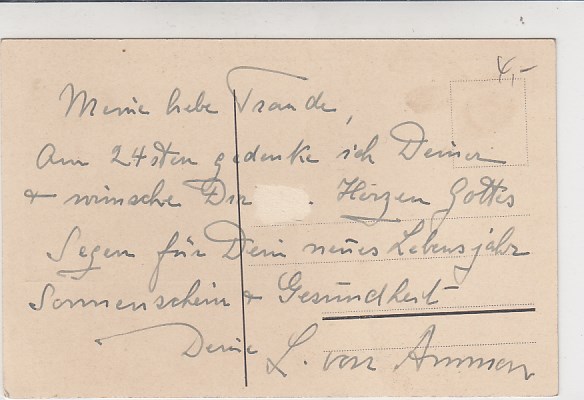 4,-
Meine liebe Traude,
Am 24sten gedenke ich Deiner
+ wünsche Dir . Herzen Gottes
Segen für Dein neues Lebensjahr
Sonnenschein + Gesundheit
Deine L. von Ammon